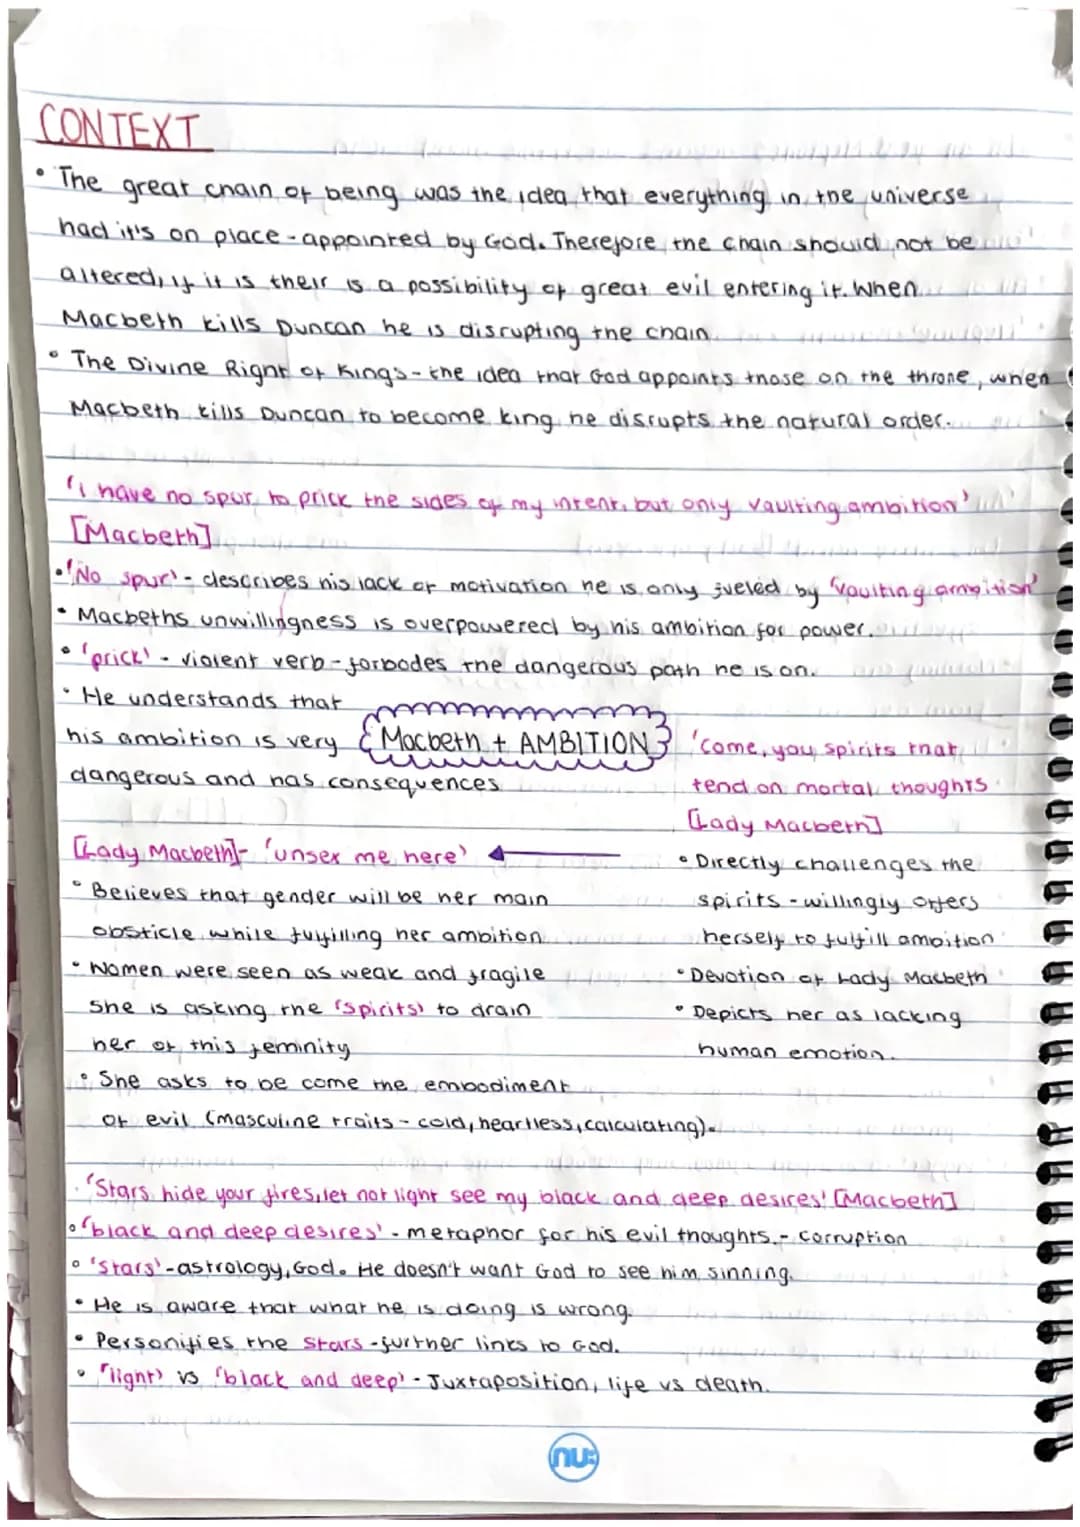 CONTEXT
• The great chain of being was the idea that everything in the universe
had it's on place - appointed by God. Therefore the chain should not be
altered, if it is their is a possibility of great evil entering it. When
Macbeth kills Duncan he is disrupting the chain.
• The Divine Right of Kings - the idea that God appoints those on the throne, when
Macbeth kills Duncan to become king he disrupts the natural order.
'I have no spur to prick the sides of my intent, but only vaulting ambition'
[Macbeth]
• 'No spur' - describes his lack of motivation he is only fueled by 'vaulting ambition'
• Macbeths unwillingness is overpowered by his ambition for power.
• 'prick' - violent verb - forbodes the dangerous path he is on.
• He understands that
his ambition is very
dangerous and has consequences
Macbeth + AMBITION
'come, you spirits that
tend on mortal thoughts
[Lady Macbeth]
• Directly challenges the
spirits - willingly offers
herself to fulfill ambition
• Devotion of Lady Macbeth
• Depicts her as lacking
human emotion.
[Lady Macbeth] - 'unsex me here'
• Believes that gender will be her main
obsticle while fulfilling her ambition
• Women were seen as weak and fragile
she is asking the 'spirits' to drain
her of this feminity
• She asks to be come the embodiment
of evil (masculine traits - cold, heartless, calculating).
'Stars hide your fires, let not light see my black and deep desires' [Macbeth]
• 'black and deep desires' - metaphor for his evil thoughts. - Corruption
• 'Stars' - astrology, God. He doesn't want God to see him sinning.
• He is aware that what he is doing is wrong.
• Personifies the stars - further links to God.
• 'light' vs 'black and deep' - Juxtaposition, life vs death.
nu: